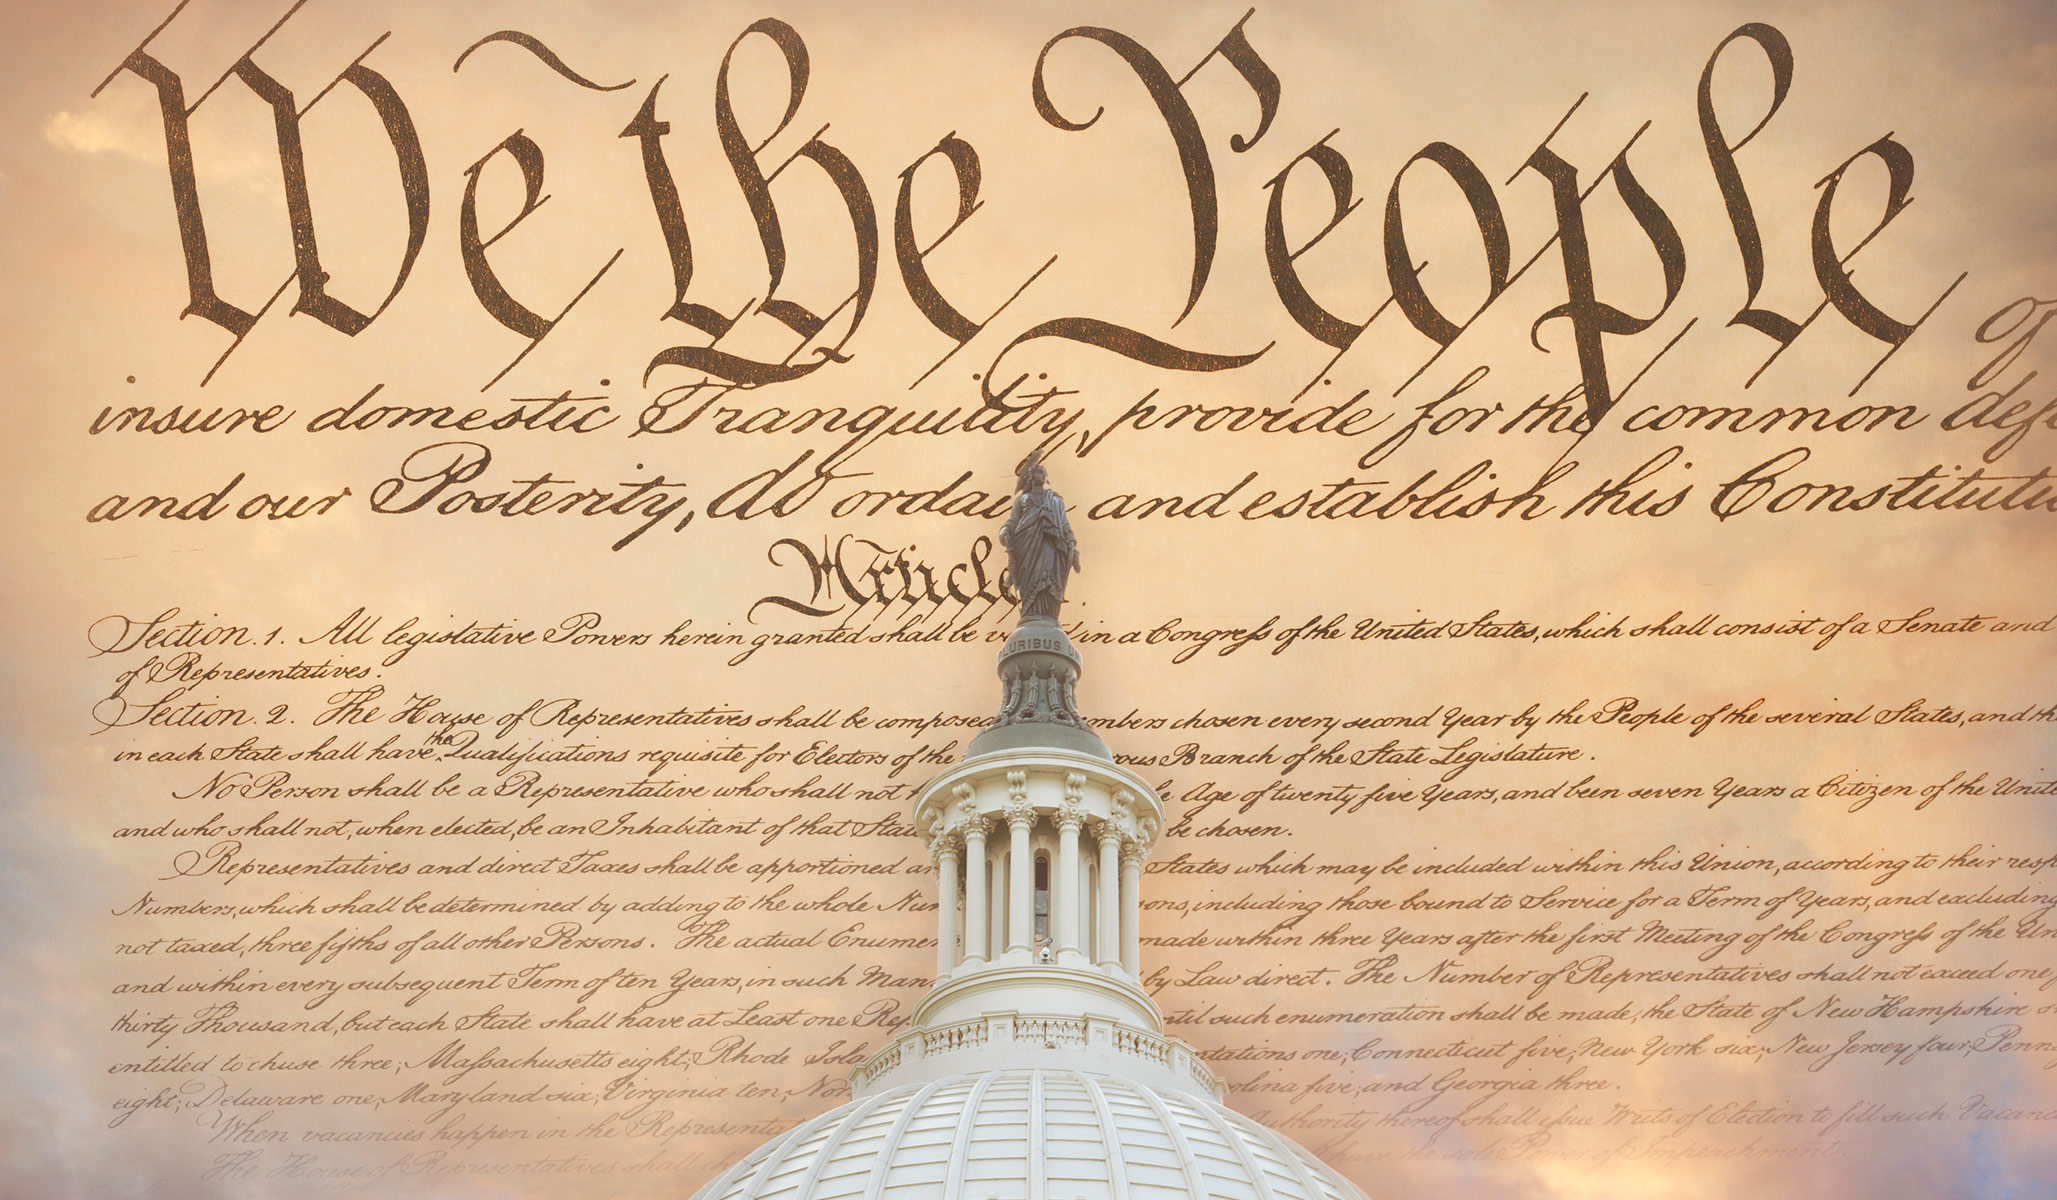 We the People of
insure domestic Tranquility, provide for the common defe
and our Posterity, do ordain and establish this Constituti
Article.
Section. 1. All legislative Powers herein granted shall be vested in a Congress of the United States, which shall consist of a Senate and
of Representatives.
PLURIBUS U
Section. 2. The House of Representatives shall be composed mbers chosen every second Year by the People of the several States, and th
in each State shall have the Qualifications requisite for Electors of the rous Branch of the State Legislature.
No Person shall be a Representative who shall not e Age of twenty five Years, and been seven Years a Citizen of the Unite
and who shall not, when elected, be an Inhabitant of that State be chosen.
Representatives and direct Taxes shall be apportioned am States which may be included within this Union, according to their resp
Numbers, which shall be determined by adding to the whole Num sons, including those bound to Service for a Term of Years, and excluding
not taxed, three fifths of all other Persons. The actual Enumer made within three Years after the first Meeting of the Congress of the Un
and within every subsequent Term of ten Years, in such Man by Law direct. The Number of Representatives shall not exceed one
thirty Thousand, but each State shall have at Least one Rep ntil such enumeration shall be made, the State of New Hampshire s
entitled to chuse three, Massachusetts eight, Rhode Isla ntations one, Connecticut five, New York six, New Jersey four, Penn
eight, Delaware one, Maryland six, Virginia ten, Nor olina five, and Georgia three.
When vacancies happen in the Representat Authority thereof shall issue Writs of Election to fill such Vacanc
The House of Representatives shall ch have the sole Power of Impeachment.